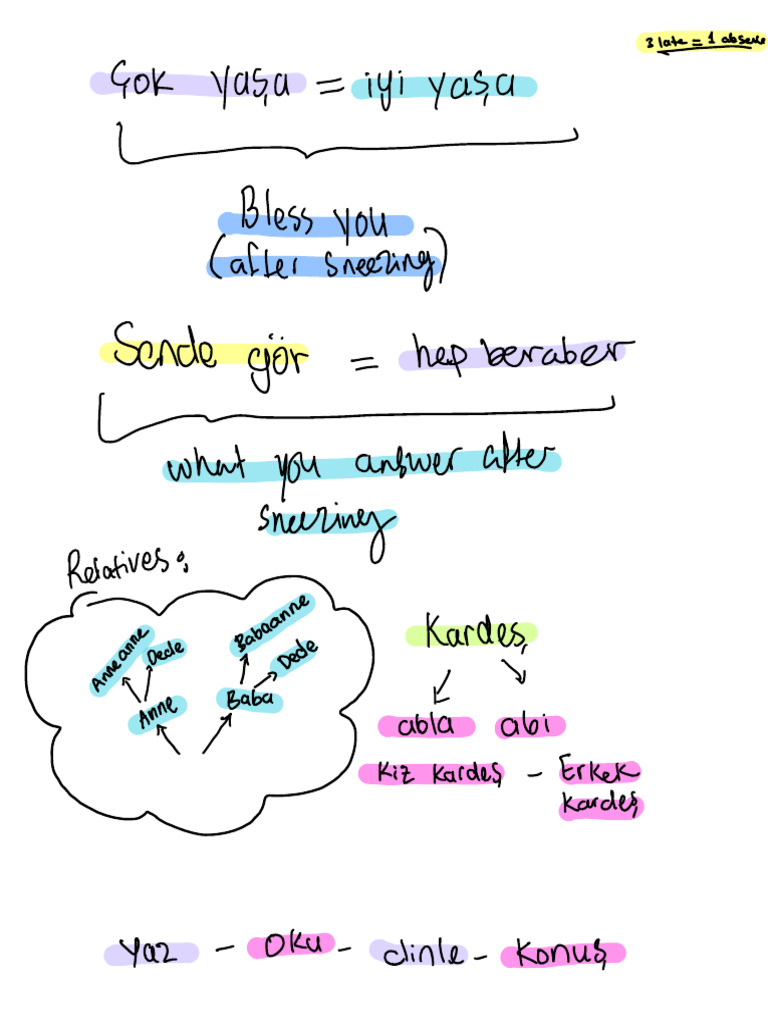 3 late = 1 absence
Çok yaşa = iyi yaşa
Bless you
(after sneezing)
Sende gör = hep beraber
what you answer after
sneezing
Relatives:
Anneanne Dede Babaanne Dede
Anne Baba
Kardeş
abla abi
Kiz kardeş - Erkek
kardeş
Yaz - Oku - dinle - Konuş